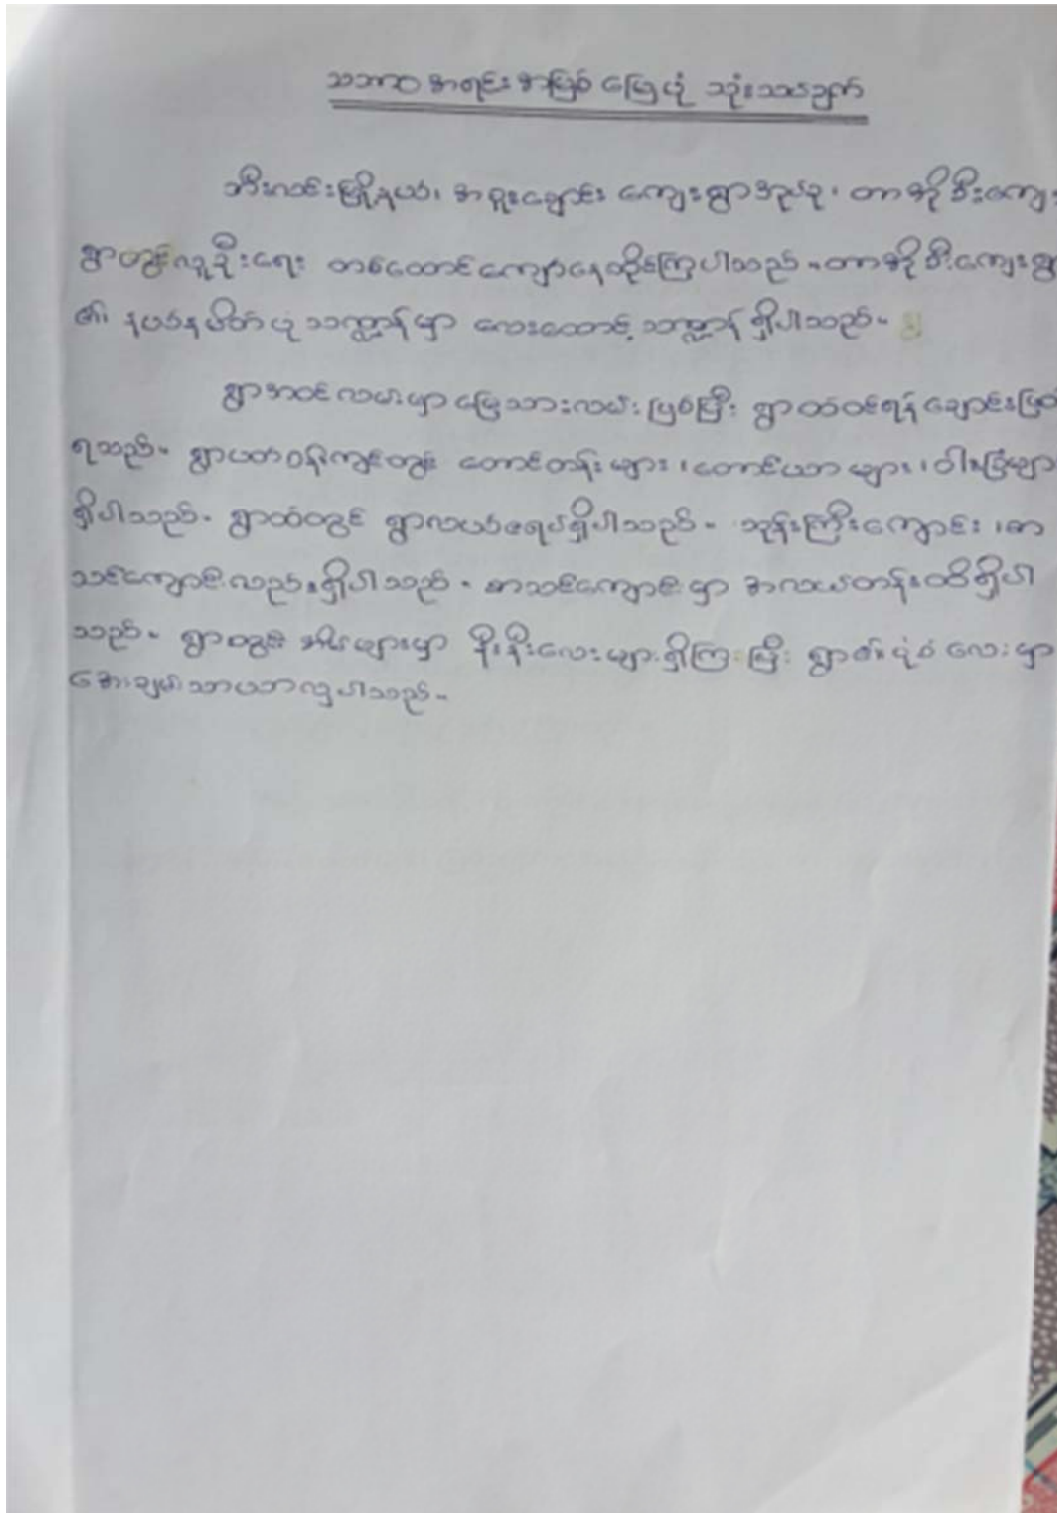 သဘာဝ အရင်းအမြစ် မြေပုံ သုံးသပ်ချက်
ဘီးလင်းမြို့နယ်၊ အစူးချောင်း ကျေးရွာအုပ်စု၊ တာအိုခီးကျေး
ရွာတွင်လူဦးရေး တစ်ထောင်ကျော်နေထိုင်ကြပါသည်။ တာအိုခီးကျေးရွာ
၏ နယ်နမိတ်ပုံသဏ္ဍာန်မှာ လေးထောင့်သဏ္ဍာန် ရှိပါသည်။
ရွာအဝင်လမ်းမှာမြေသားလမ်း ဖြစ်ပြီး ရွာထဲဝင်ရန်ချောင်းဖြတ်
ရသည်။ ရွာပတ်ဝန်းကျင်တွင် တောင်တန်းများ၊ တောင်ယာများ၊ ဝါးခြံများ
ရှိပါသည်။ ရွာထဲတွင် ရွာလယ်ဇရပ်ရှိပါသည်။ ဘုန်းကြီးကျောင်း၊ စာ
သင်ကျောင်းလည်းရှိပါသည်။ စာသင်ကျောင်းမှာ အလယ်တန်းထိရှိပါ
သည်။ ရွာတွင် အိမ်များမှာ နီးနီးလေးများရှိကြပြီး ရွာ၏ပုံစံလေးမှာ
အေးချမ်းသာယာလှပါသည်။